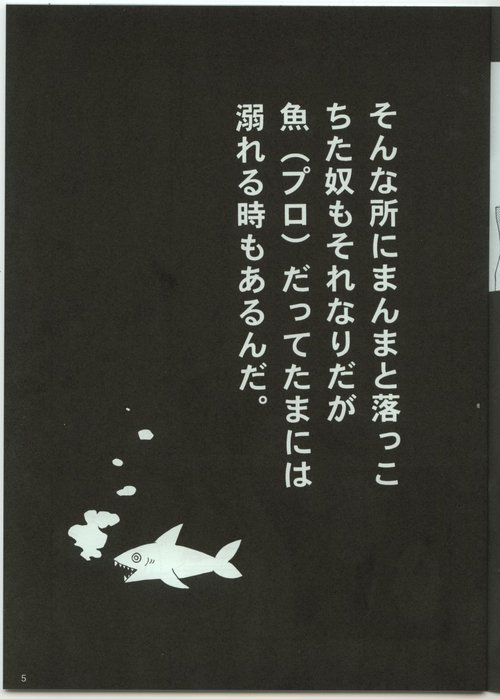 そんな所にまんまと落っこ
ちた奴もそれなりだが
魚（プロ）だってたまには
溺れる時もあるんだ。
5